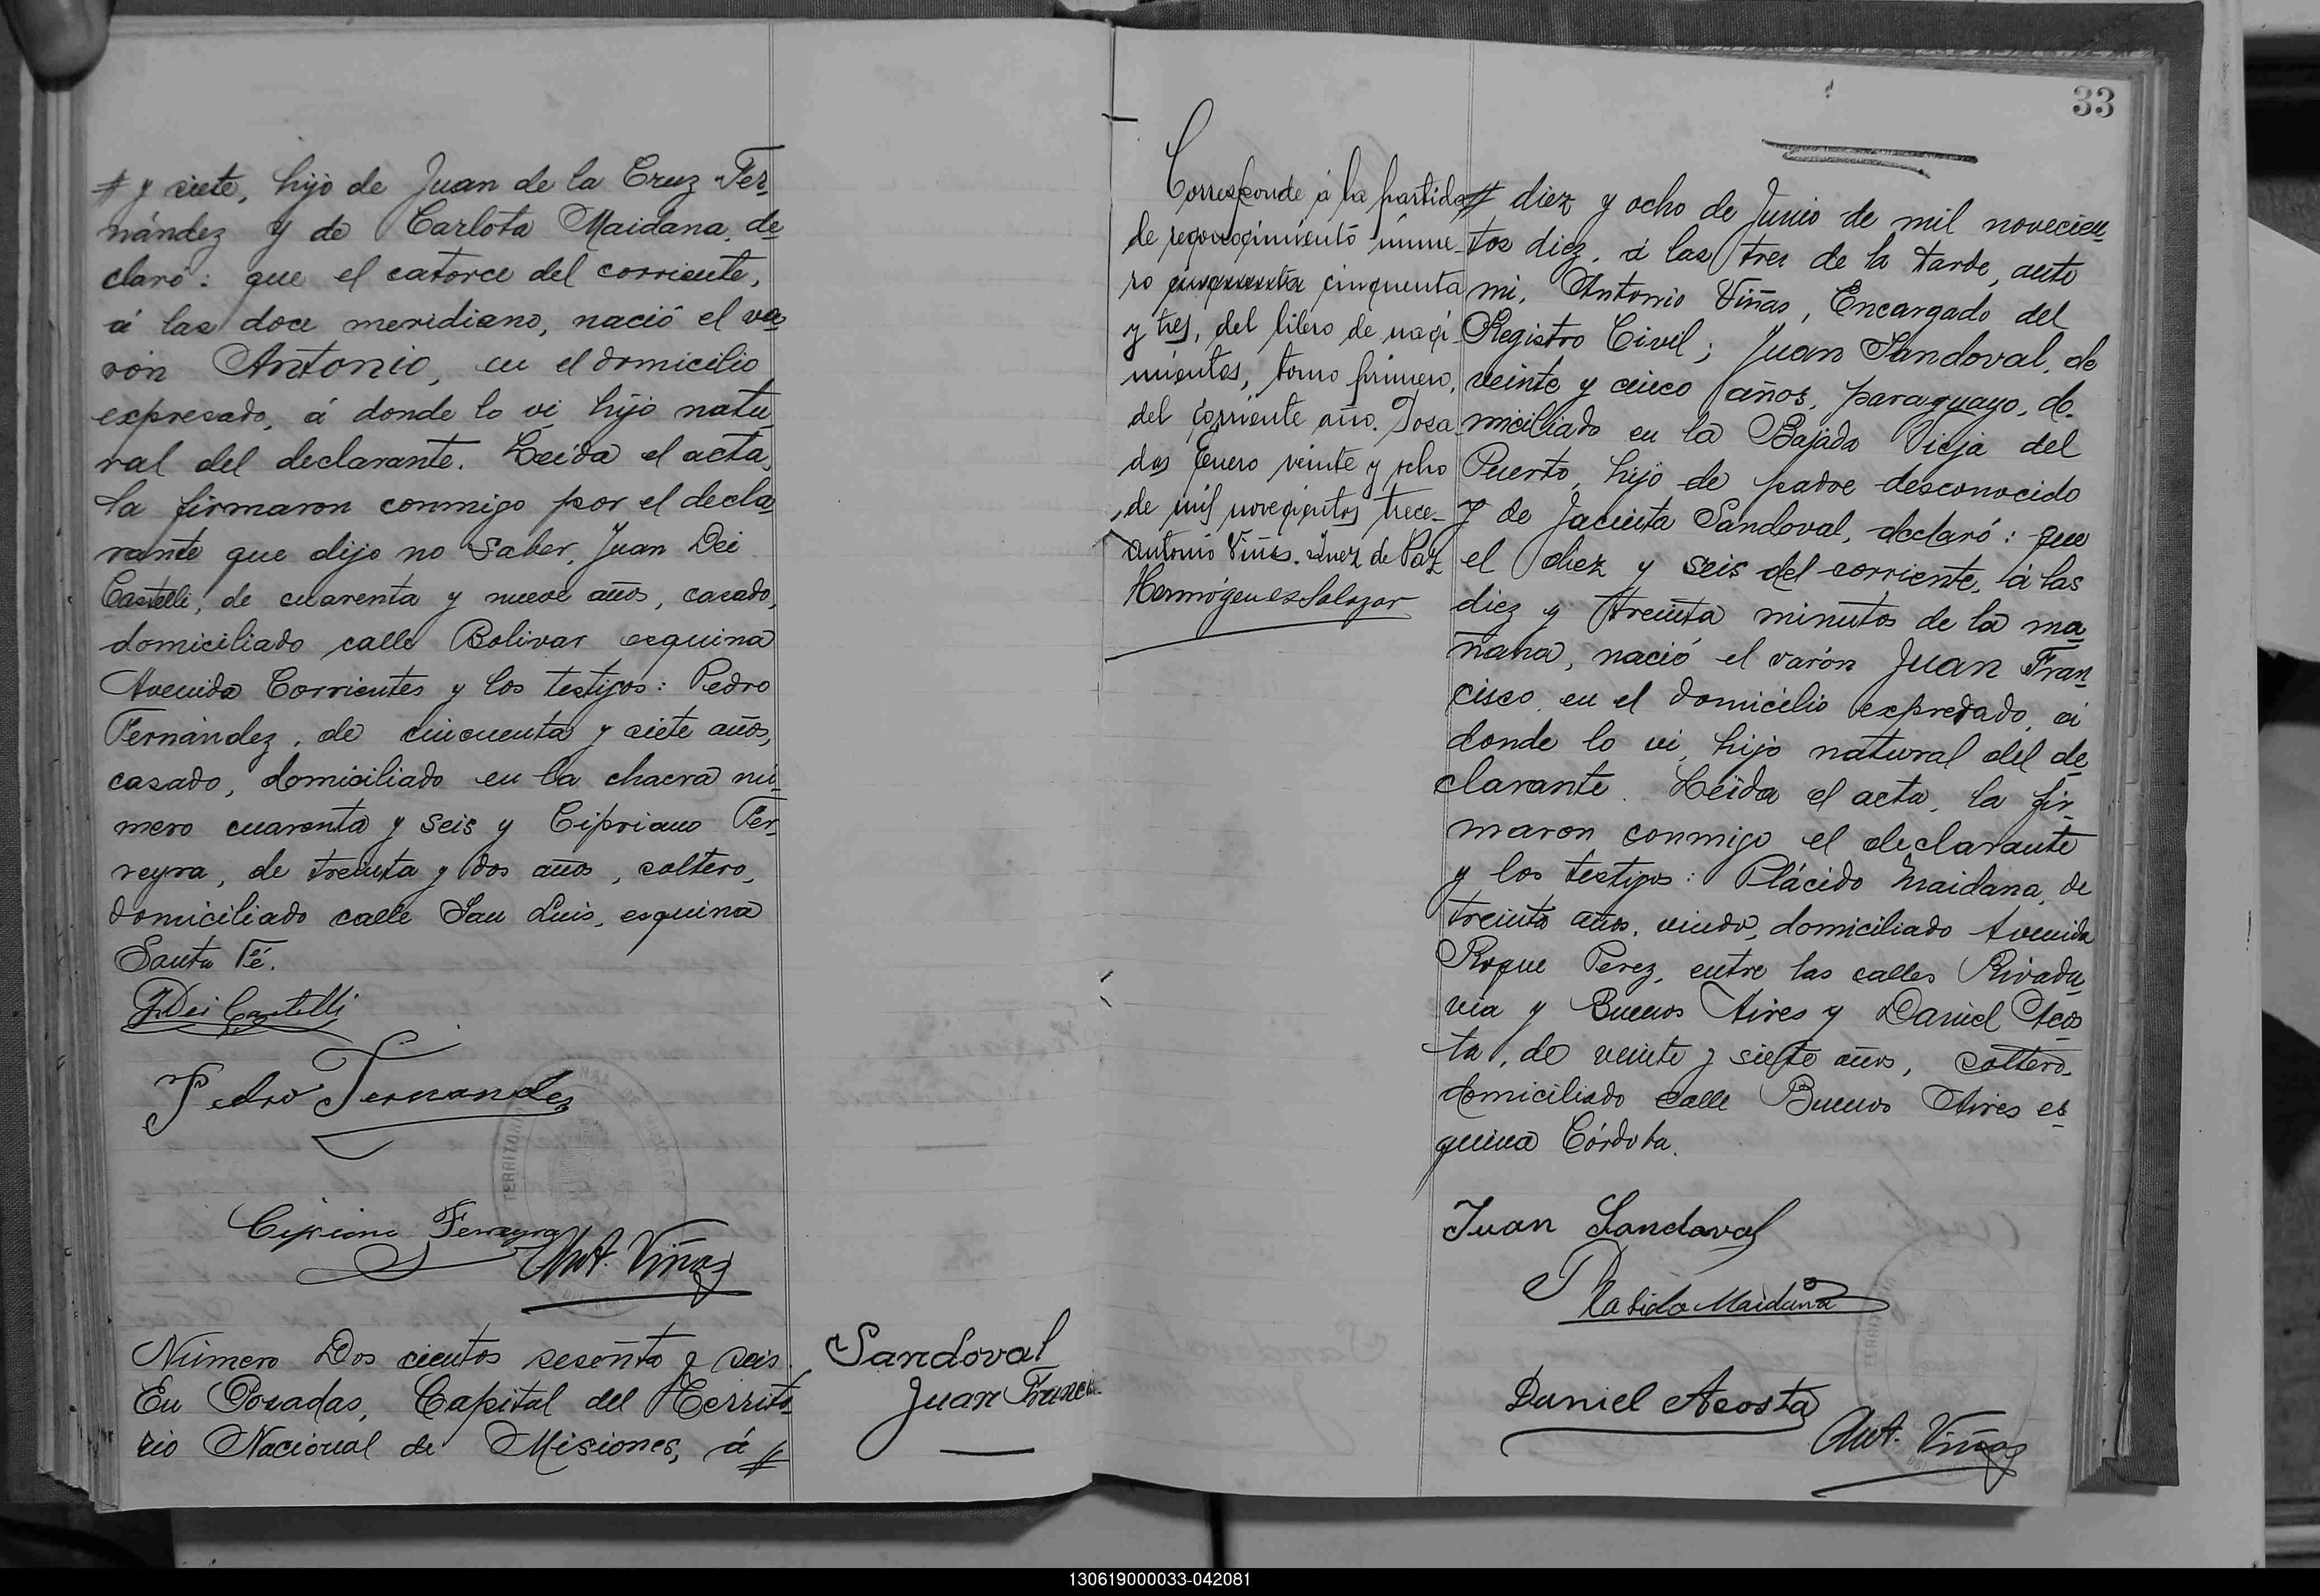 # y siete, hijo de Juan de la Cruz Fer-
nández y de Carlota Maidana, de-
claró: que el catorce del corriente,
á las doce meridiano, nació el va-
rón Antonio, en el domicilio
expresado, á donde lo vi, hijo natu-
ral del declarante. Leida el acta,
la firmaron conmigo por el decla-
rante que dijo no saber, Juan Dei
Castelli, de cuarenta y nueve años, casado,
domiciliado calle Bolivar esquina
Avenida Corrientes y los testigos: Pedro
Fernández, de cincuenta y siete años,
casado, domiciliado en la chacra nú-
mero cuarenta y seis y Cipriano Fer-
reyra, de treinta y dos años, soltero,
domiciliado calle San Luis, esquina
Santa Fé.
J. Dei Castelli
Pedro Fernandez
TERRITORIO
Cipriano Ferreyra
Ant. Viñas
Número Dos cientos sesenta y seis.
En Posadas, Capital del Territo-
rio Nacional de Misiones, á #
Sandoval
Juan Franc
33
Corresponde á la partida
de reconocimiento núme-
ro cincuenta cinquenta
y tres, del libro de naci-
mientos, tomo primero,
del corriente año. Posa-
das Enero veinte y ocho
de mil novecientos trece-
Antonio Viñas. Juez de Paz
Hermógenes Salazar
# diez y ocho de Junio de mil novecien-
tos diez, á las tres de la tarde, ante
mi, Antonio Viñas, Encargado del
Registro Civil; Juan Sandoval, de
veinte y cinco años, paraguayo, do-
miciliado en la Bajada Vieja del
Puerto, hijo de padre desconocido
y de Jacinta Sandoval, declaró: que
el diez y seis del corriente, á las
diez y treinta minutos de la ma-
ñana, nació el varón Juan Fran-
cisco, en el domicilio expresado, á
donde lo vi, hijo natural del de-
clarante. Leída el acta, la fir-
maron conmigo el declarante
y los testigos: Plácido Maidana, de
treinta años, viudo, domiciliado Avenida
Roque Perez, entre las calles Rivada-
via y Buenos Aires y Daniel Acos-
ta, de veinte y siete años, soltero,
domiciliado calle Buenos Aires es-
quina Córdoba.
Juan Sandoval
Plasido Maidana
Daniel Acosta
Ant. Viñas
130619000033-042081